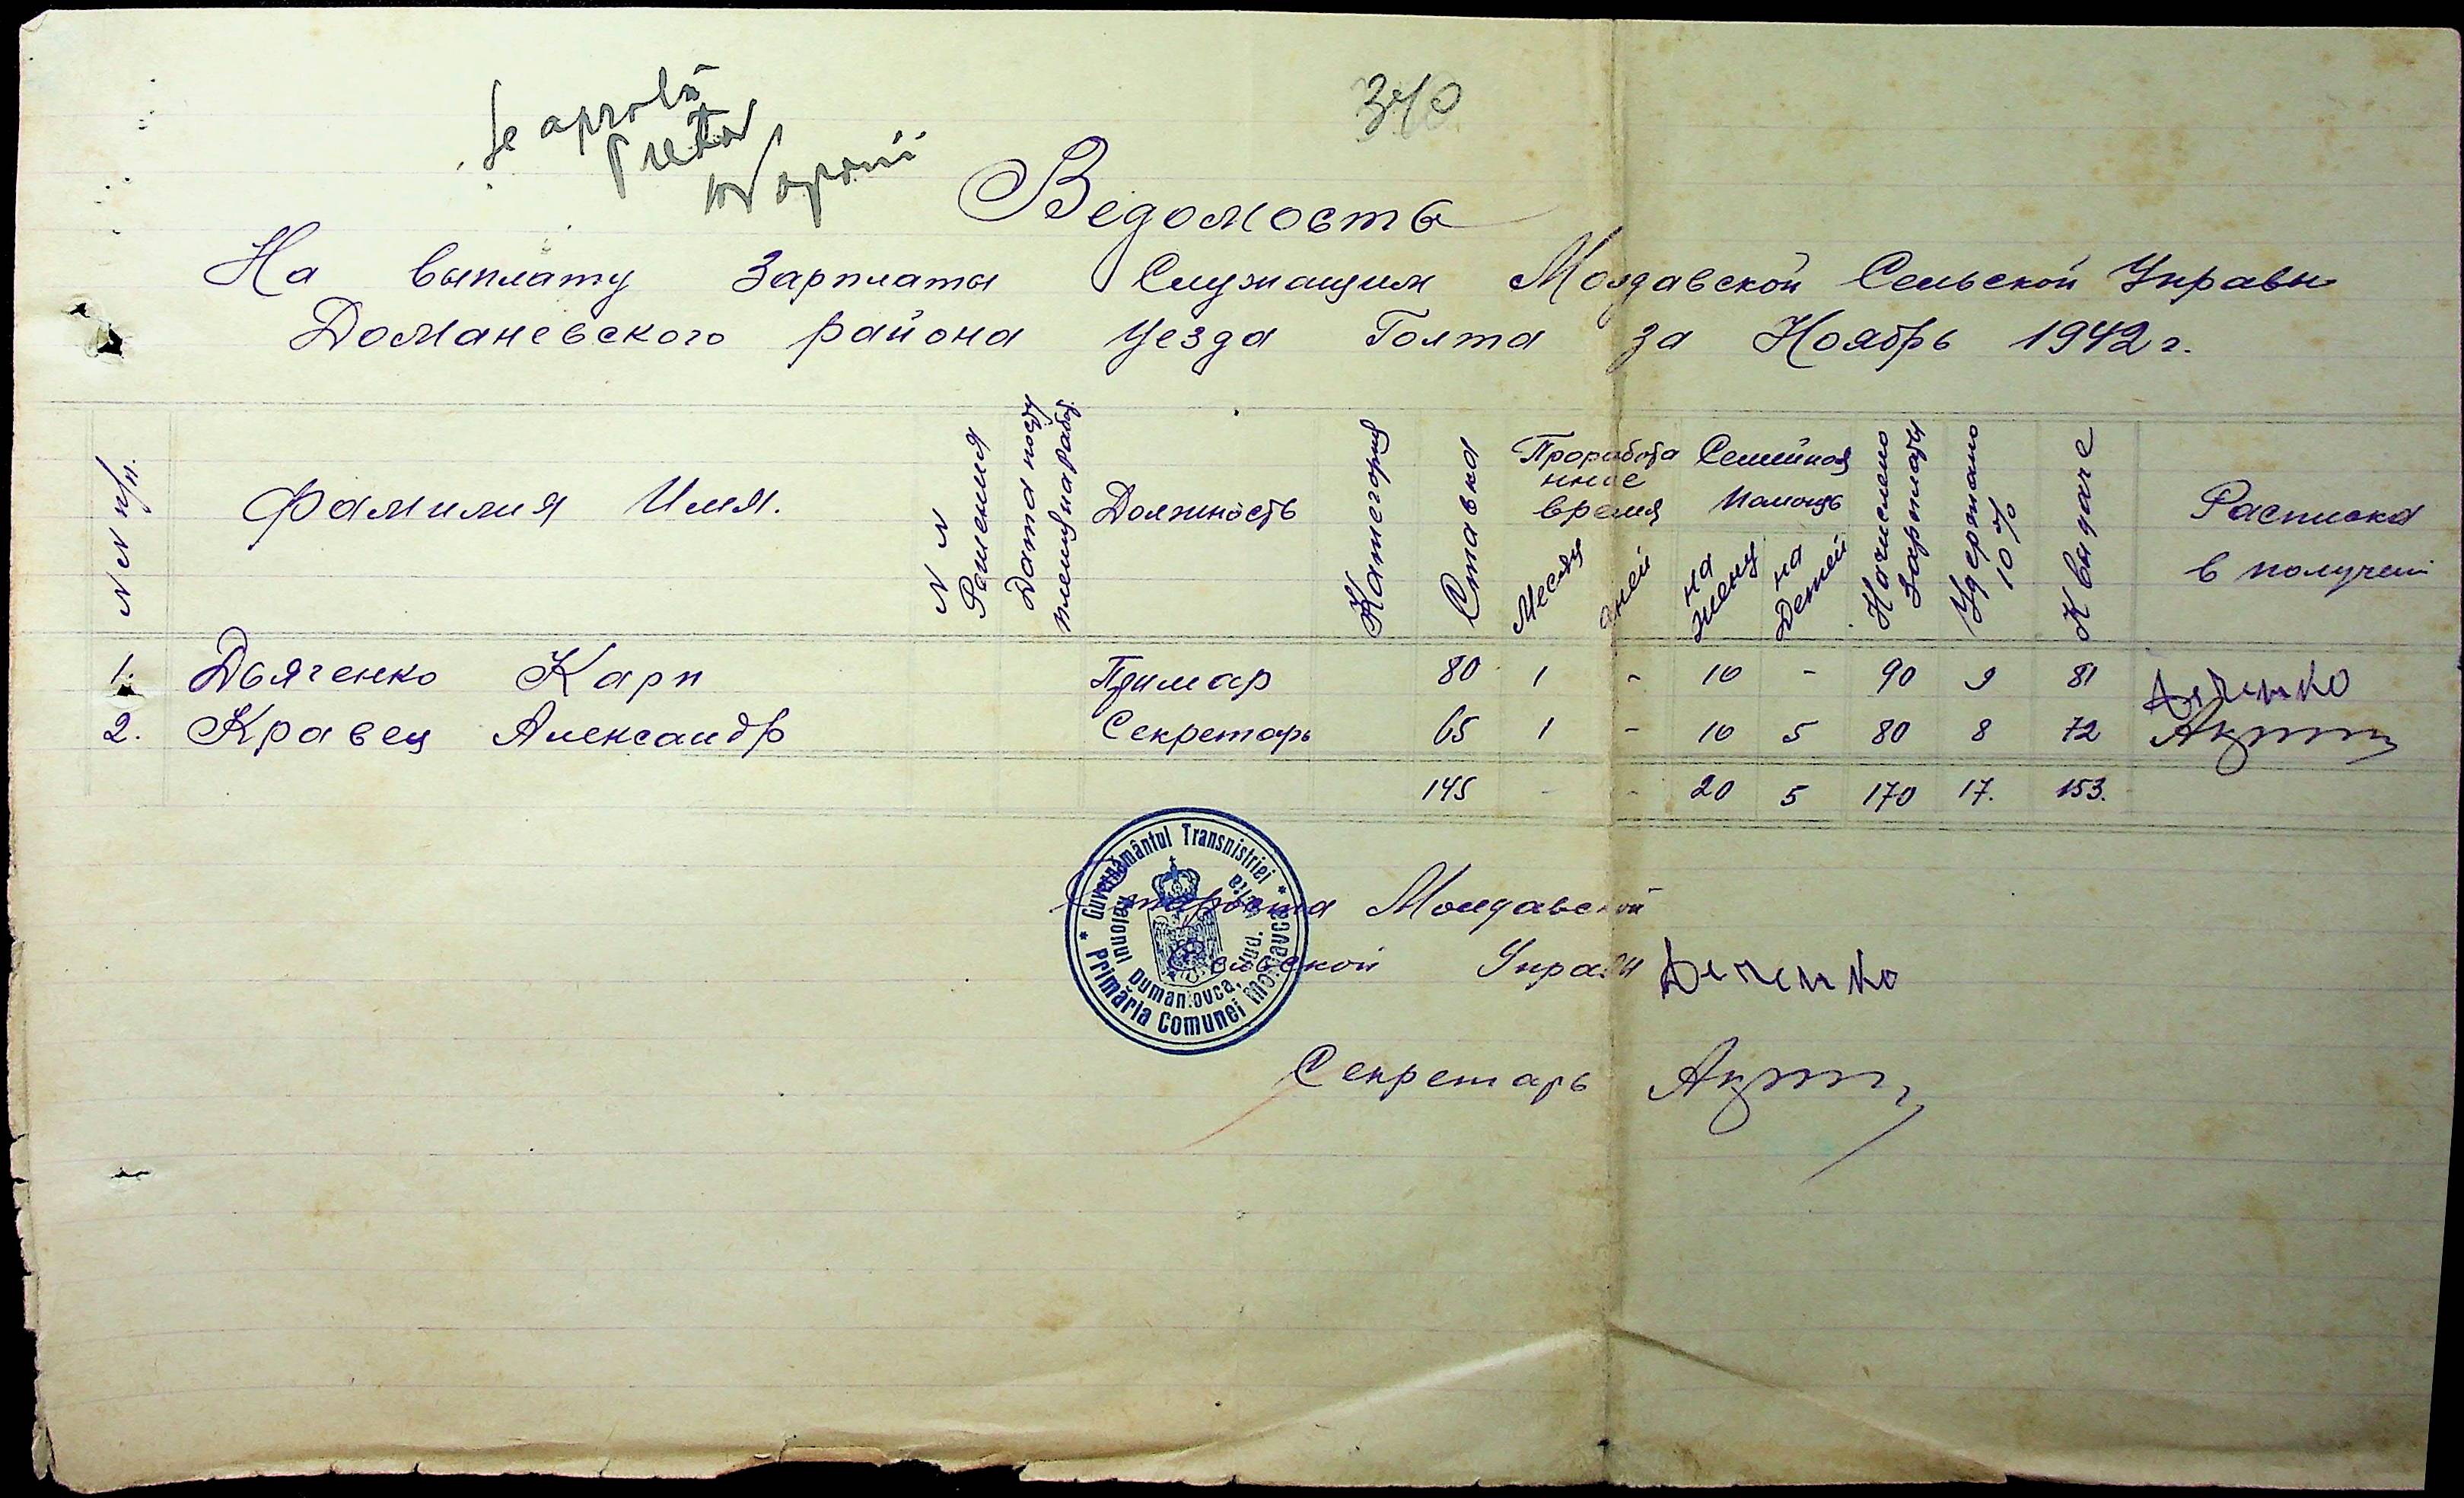 Se aprobă
Pretor
340
Ведомость
На выплату Зарплаты Служащим Молдавской Сельской Управы
Доманевского района Уезда Голта за Ноябрь 1942 г.
N N п/п.
Фамилия Имя.
N N
Решения
Дата посту
пления на работ.
Должность
Категория
Ставка
Проработа
нное
время
Месяц
дней
Семейная
помощь
на
жену
на
Детей
Начислено
Зарплаты
Удержано
10%
К выдаче
Расписка
в получен
1. Дьяченко Карп Примар 80 1 - 10 - 90 9 81 Дяченко
2. Кравец Александр Секретарь 65 1 - 10 5 80 8 72
145 - - 20 5 170 17. 153.
* Guvernământul Transnistriei *
Primăria Comunei Moldavca
Raionul Dumaniovca, Jud. Golta
Староста Молдавской
Сельской Управы Дяченко
Секретарь